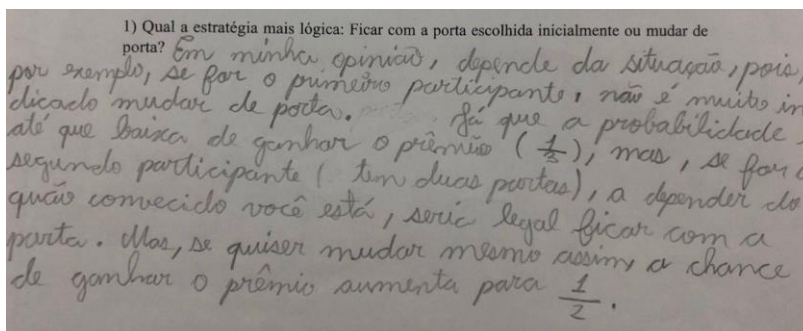 1) Qual a estratégia mais lógica: Ficar com a porta escolhida inicialmente ou mudar de
porta? Em minha opinião, depende da situação, pois,
por exemplo, se for o primeiro participante, não é muito in
dicado mudar de porta. Já que a probabilidade
até que baixa de ganhar o prêmio (1/3), mas, se for o
segundo participante (tem duas portas), a depender do
quão convecido você está, seria legal ficar com a
porta. Mas, se quiser mudar mesmo assim, a chance
de ganhar o prêmio aumenta para 1/2.